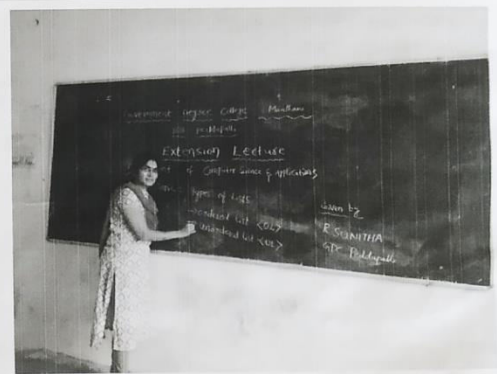 Government Degree College Manthani
Extension Lecture
of Computer Science & Applications
Types of Lists
ordered list <OL>
unordered list <UL>
Given by
R SUNITHA
GDC Peddapalli